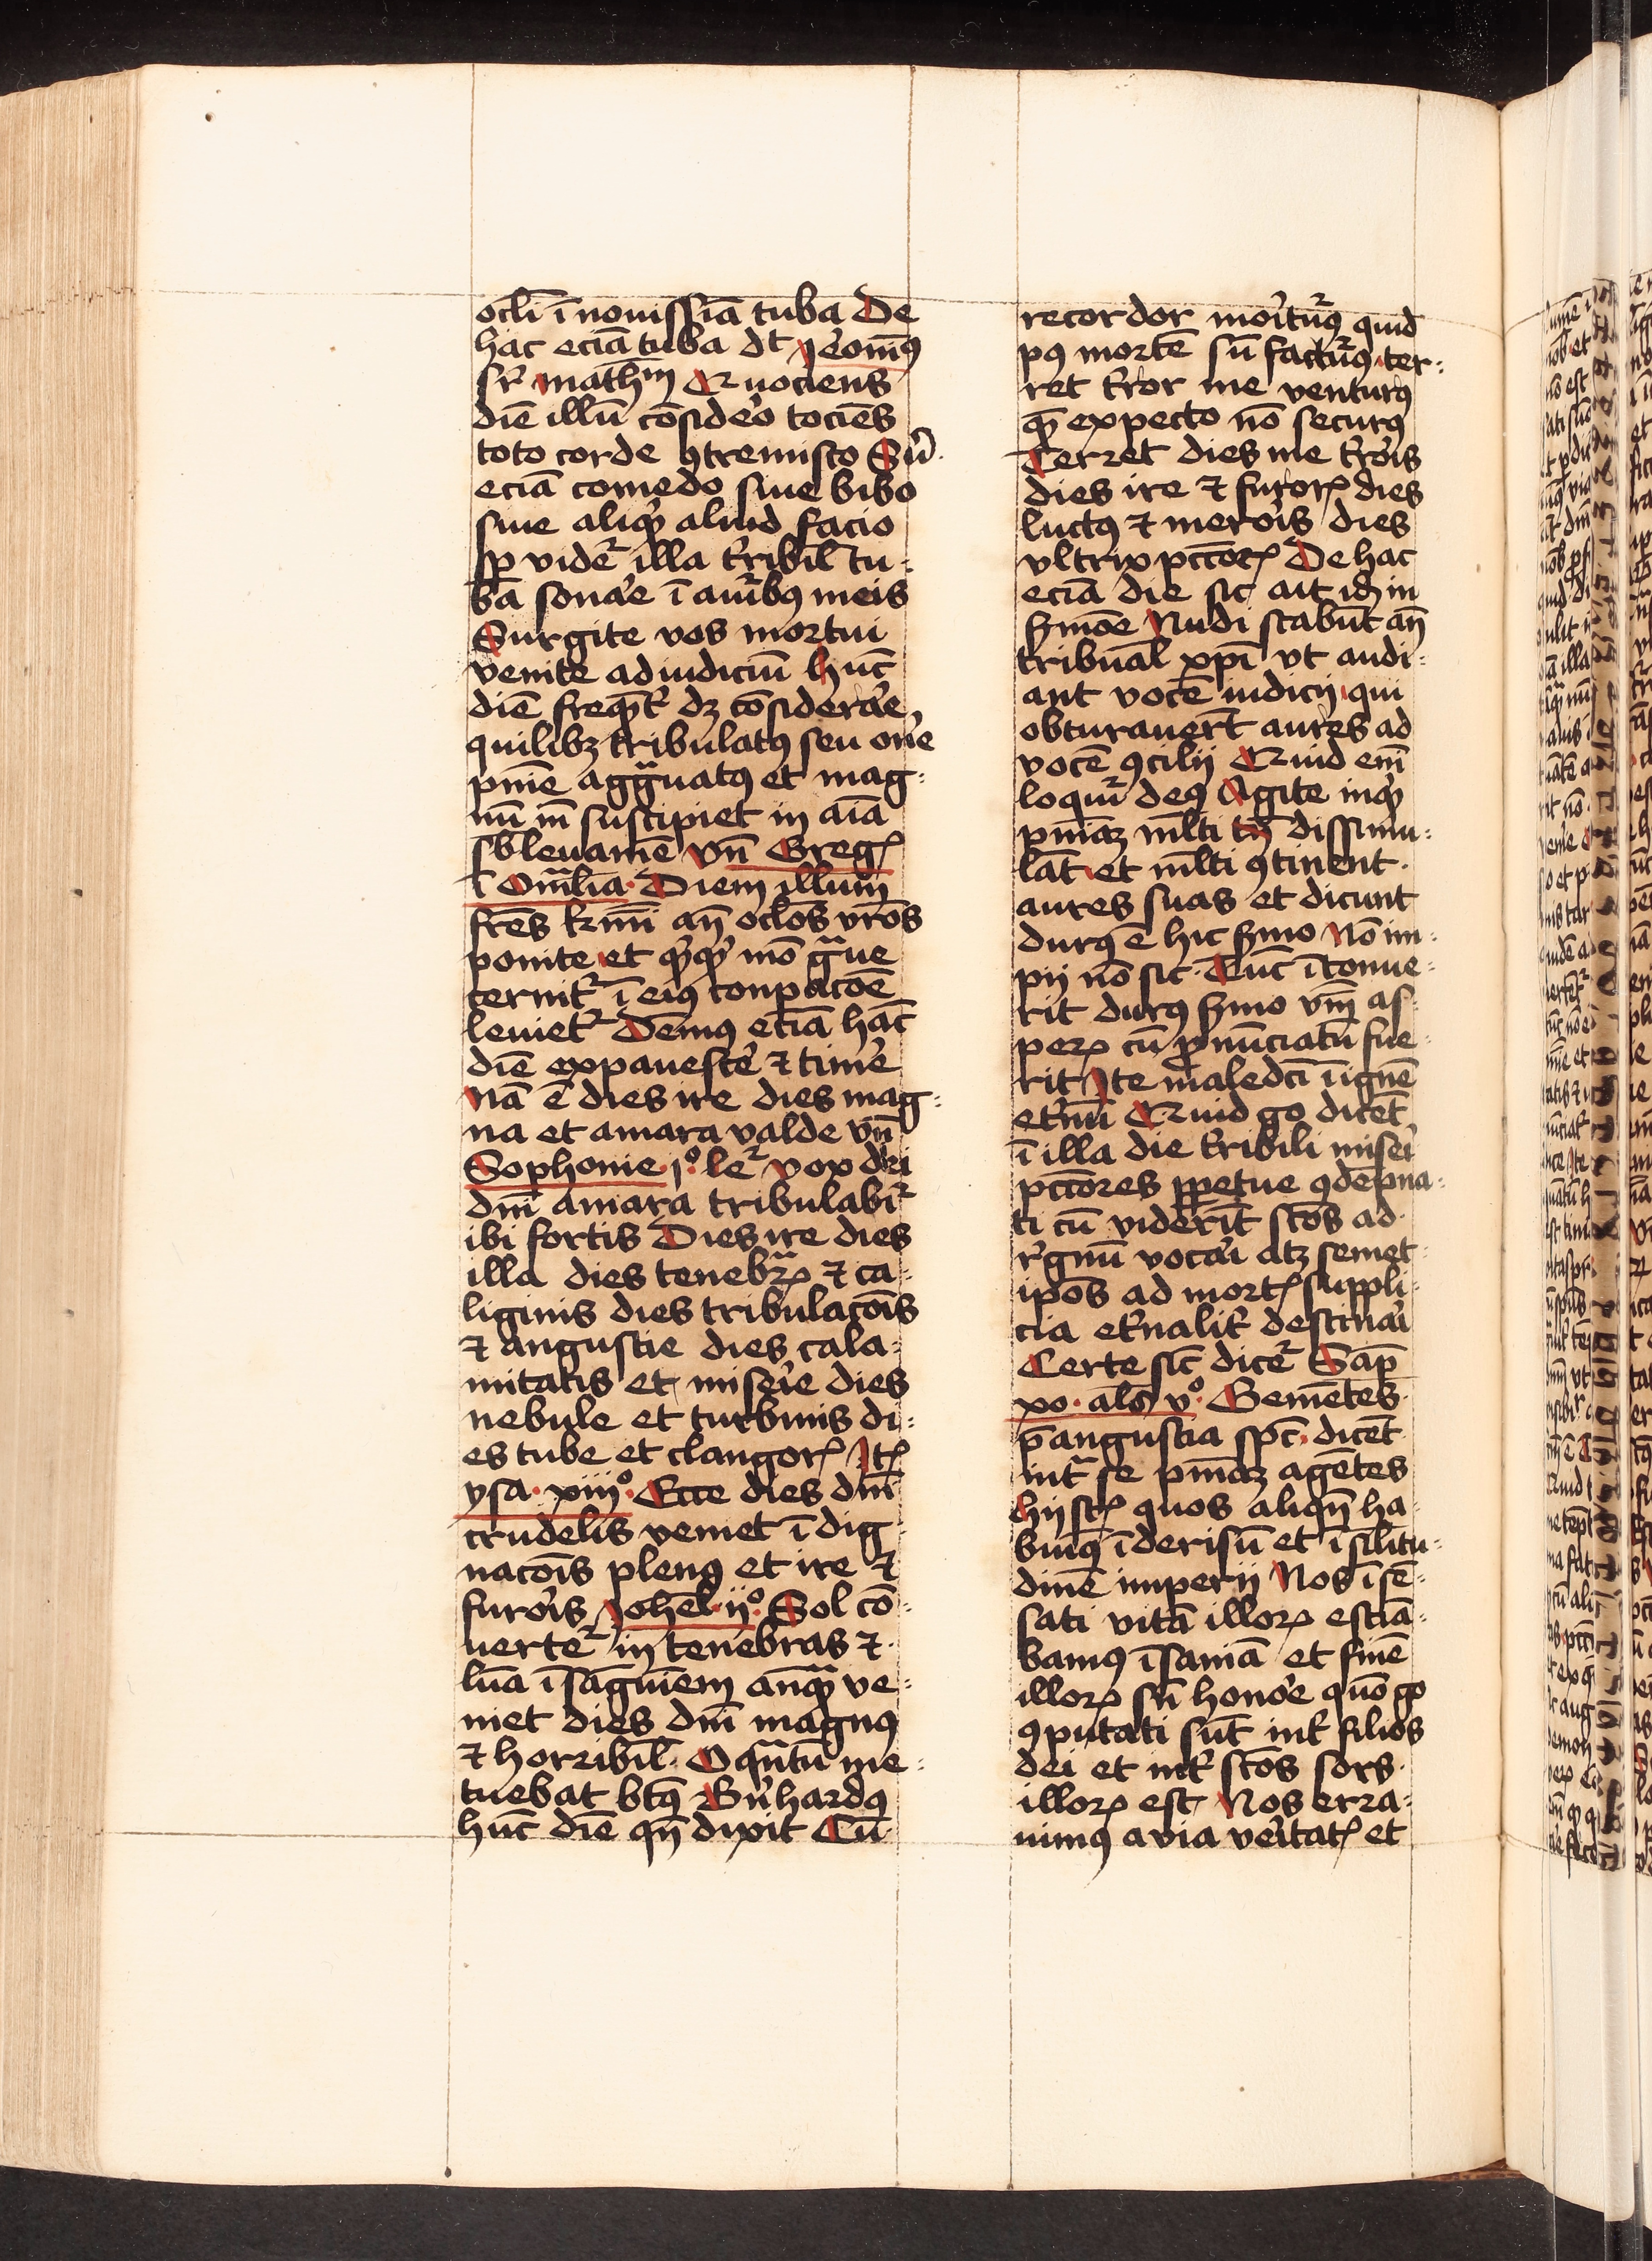 ocli̅ i̅ nouissi̅a tuba De
hac ecia̅ tuba dt̅ Jeoni̅ꝰ
sr̅ math̅m Quociens
die̅ illu̅ co̅sideo̅ tocie̅s
toto corde ꝯtremisco Siu̅
ecia̅ comedo siue bibo
siue aliqͥd aliud facio
sp̅ videt᷑ illa tr̅ribil̅ tu-
ba sona̅e i̅ auribꝰ meis
Surgite vos mortui
venite ad iudiciu̅ hu̅c
die̅ freque̅t̅ dꝫ co̅sidera̅e
quilibꝫ tribulatꝰ seu one̅
pni̅e agg̅uatꝰ et mag-
nu̅ in̅ suscipiet in ai̅a
sb̅leuame̅ vn̅ Greg̅
i̅ om̅lia Diem illum
fr̅es kmi̅ an̅ oclo̅s vr̅os
ponite et qͥcqͥd mo̅ g̅ue
cernit᷑ i̅ eiꝰ conpacoe̅
leuiet᷑ Demꝰ ecia̅ ha̅c
die̅ expauesce̅ ⁊ time̅
Na̅ e̅ dies ire dies mag-
na et amara valde vn̅
Sophonie j° le᷑ vox diei
dni̅ amara tribulabit᷑
ibi fortis Dies ire dies
illa dies tenebrꝝ ⁊ ca-
liginis dies tribulaco̅is
⁊ angustie dies cala-
mitatis et misei̅e dies
nebule et turbinis di-
es tube et clangorꝭ Jtꝭ
ysa xiij° Ecce dies dni̅
crudelis veniet i̅dig-
naco̅is plenꝰ et ire ⁊
furoi̅s Johel̅ ij° Sol co̅-
uertet᷑ in tenebras ⁊
lu̅a i̅ sa̅guinem anq̅ ve-
niet dies dni̅ magnꝰ
⁊ horribil̅ O qua̅tu̅ me-
tuebat bt̅ꝰ Bn̅hardꝰ
hu̅c die̅ qn̅ dixit Cu̅
recordor moi̅turꝰ quid
pꝰ morte̅ su̅ facturꝰ ter-
ret tr̅ror me venturꝰ
que̅ expecto no̅ securꝰ
Terret dies me tr̅roi̅s
dies ire ⁊ furorꝭ dies
luctꝰ ⁊ meroi̅s dies
vltrix pcc̅orꝝ De hac
ecia̅ die sic ait id̅ in
sm̅o̅e Nudi stabu̅t an̅
tribunal xpi̅ vt audi-
ant voce̅ iudicij qui
obturauer̅t aures ad
voce̅ ꝯcilij Quid em̅
loquit᷑ deꝰ Agite inqͥt
pni̅aꝫ ml̅ti tn̅ dissimu-
la̅t et ml̅ti ꝯtinent
aures suas et dicunt
durꝰ e̅ hic sm̅o No̅ im-
pij no̅ sic Tu̅c i̅conue-
rit durꝰ sm̅o vm̅ as-
perꝝ cu̅ ꝓnu̅ciatu̅ fue-
rit Jte maledci̅ i̅ igne̅
etr̅nu̅ Quid go dice̅t
i̅ illa die tr̅ribili misei̅
pcc̅ores ꝑpetue ꝯde̅pna-
ti cu̅ videri̅t sco̅s ad
re̅gnu̅ vocai̅ atꝫ semet-
ipo̅s ad mortꝭ suppli-
cia etr̅nalit̅ destinai̅
Certe sic̅ dicet᷑ Sap̅
xo als̅ v° Geme̅tes
p̅ angustia spc̅ dice̅t
intͣ se pni̅aꝫ age̅tes
hij sꝭt quos aliqn̅ ha-
buimꝰ i̅ derisu̅ et i̅ sil̅itu-
dine̅ imperij Nos i̅se̅-
sati vita̅ illorꝝ estia̅-
bamꝰ i̅sania̅ et fine̅
illorꝝ sn̅ hono̅e quo̅ go
ꝯputati su̅t int̅ filios
dei et int̅ sco̅s sors
illorꝝ est Nos erra-
uimꝰ a via vei̅tatꝭ et